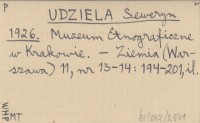 P
UDZIELA Seweryn
1926. Muzeum Etnograficzne
w Krakowie. – Ziemia (War-
szawa) 11, nr 13-14: 194-201, il.
WHP
MT